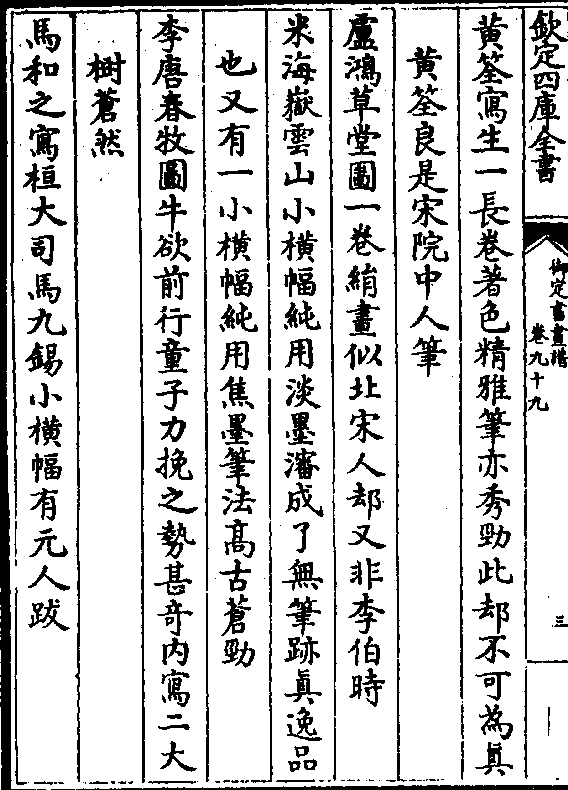 欽定四庫全書
御定書畫譜
卷九十九
三
黄筌寫生一長卷著色精雅筆亦秀勁此却不可為真
黄筌良是宋院中人筆
盧鴻草堂圖一卷絹畫似北宋人却又非李伯時
米海嶽雲山小横幅純用淡墨瀋成了無筆跡真逸品
也又有一小横幅純用焦墨筆法高古蒼勁
李唐春牧圖牛欲前行童子力挽之勢甚奇内寫二大
樹蒼然
馬和之寫桓大司馬九錫小横幅有元人跋